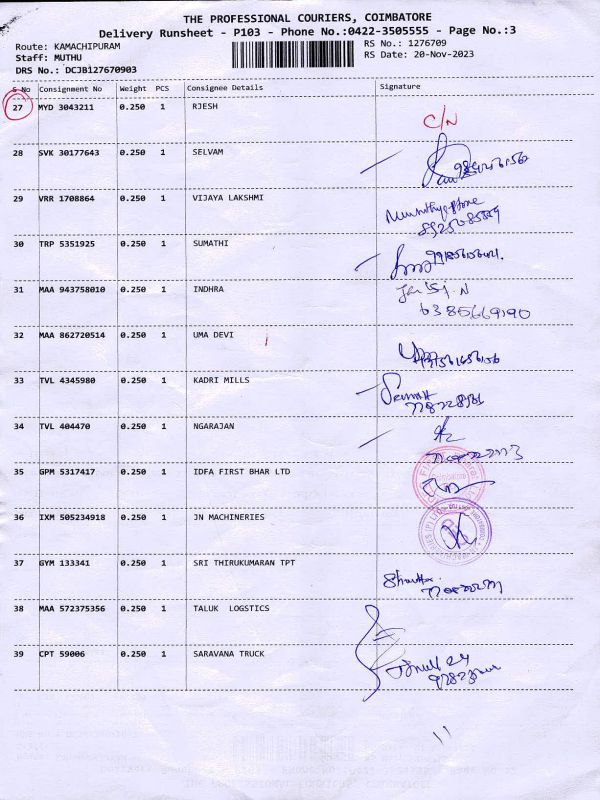 THE PROFESSIONAL COURIERS, COIMBATORE
Delivery Runsheet - P103 - Phone No.:0422-3505555 - Page No.:3
Route: KAMACHIPURAM
RS No.: 1276709
Staff: MUTHU
RS Date: 20-Nov-2023
DRS No.: DCJB127670903
S No Consignment No Weight PCS Consignee Details Signature
27 MYD 3043211 0.250 1 RJESH
C/N
28 SVK 30177643 0.250 1 SELVAM
29 VRR 1708864 0.250 1 VIJAYA LAKSHMI
30 TRP 5351925 0.250 1 SUMATHI
31 MAA 943758010 0.250 1 INDHRA
6385669190
32 MAA 862720514 0.250 1 UMA DEVI
33 TVL 4345980 0.250 1 KADRI MILLS
34 TVL 404470 0.250 1 NGARAJAN
35 GPM 5317417 0.250 1 IDFA FIRST BHAR LTD
36 IXM 505234918 0.250 1 JN MACHINERIES
37 GYM 133341 0.250 1 SRI THIRUKUMARAN TPT
38 MAA 572375356 0.250 1 TALUK LOGSTICS
39 CPT 59006 0.250 1 SARAVANA TRUCK
11